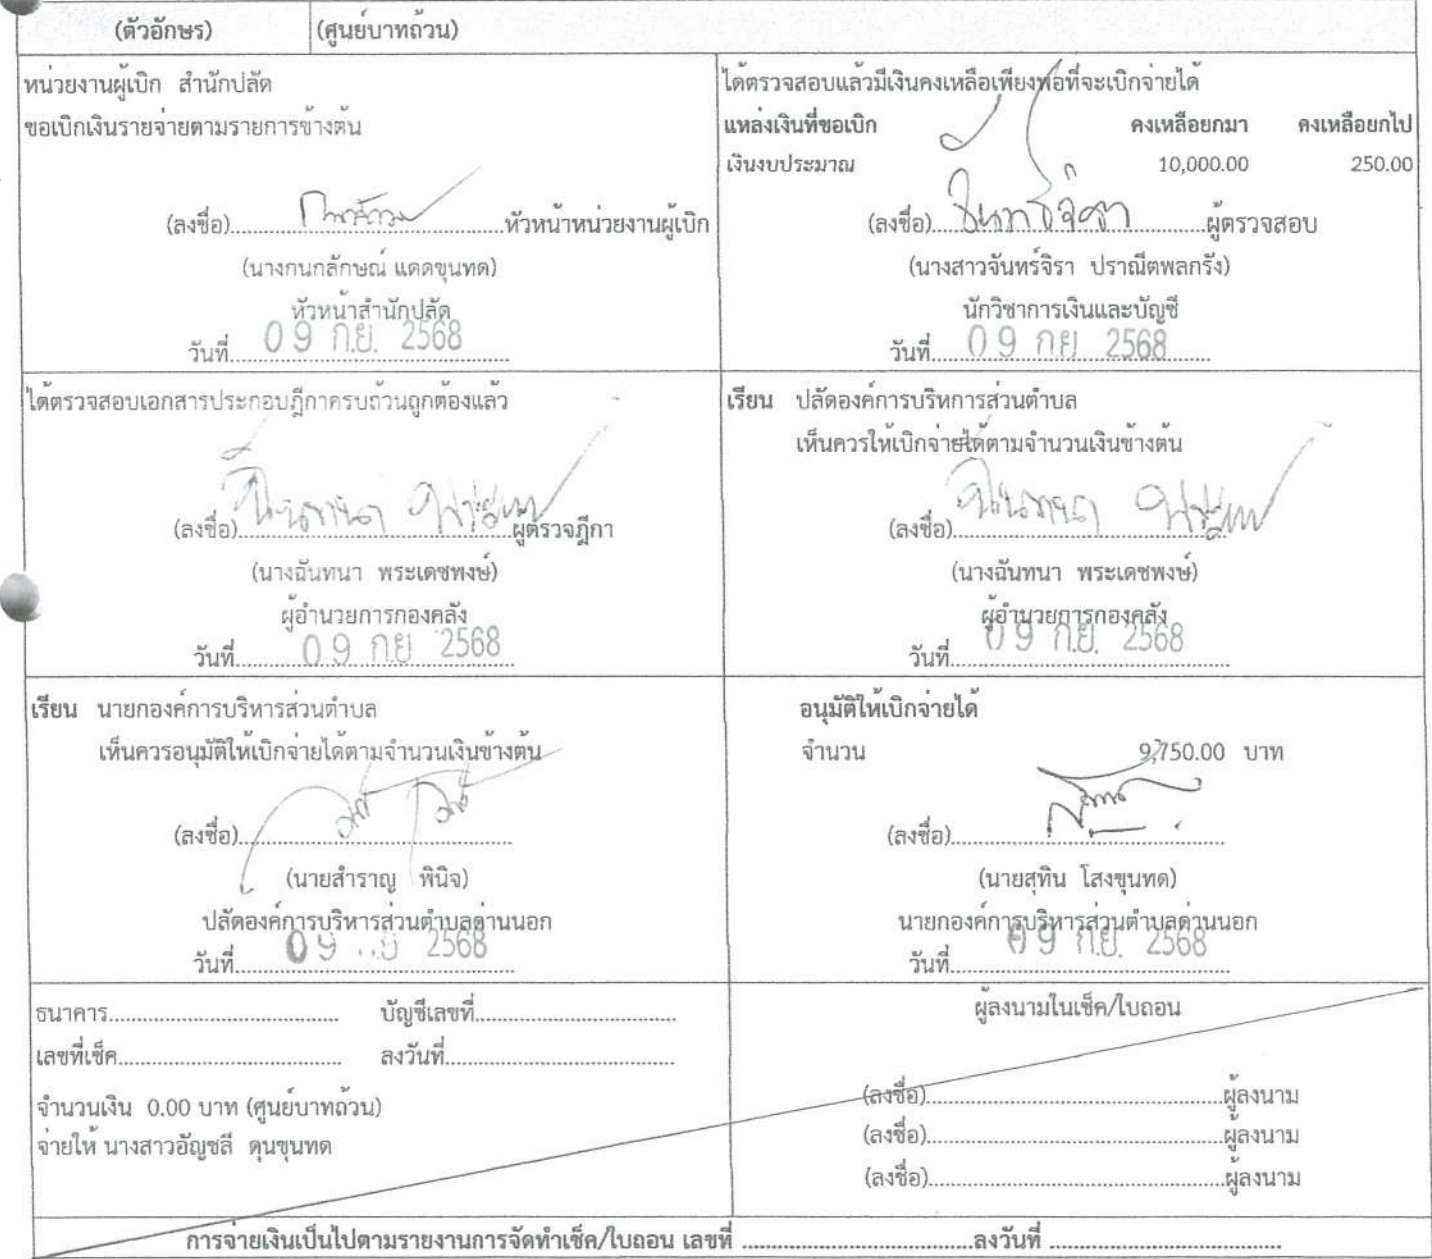 (ตัวอักษร) (ศูนย์บาทถ้วน)
หน่วยงานผู้เบิก สำนักปลัด
ขอเบิกเงินรายจ่ายตามรายการข้างต้น
(ลงชื่อ)........................หัวหน้าหน่วยงานผู้เบิก
(นางกนกลักษณ์ แดดขุนทด)
หัวหน้าสำนักปลัด
วันที่ 09 ก.ย. 2568
ได้ตรวจสอบแล้วมีเงินคงเหลือเพียงพอที่จะเบิกจ่ายได้
แหล่งเงินที่ขอเบิก คงเหลือยกมา คงเหลือยกไป
เงินงบประมาณ 10,000.00 250.00
(ลงชื่อ) จันทร์จิรา ผู้ตรวจสอบ
(นางสาวจันทร์จิรา ปราณีตพลกรัง)
นักวิชาการเงินและบัญชี
วันที่ 09 ก.ย. 2568
ได้ตรวจสอบเอกสารประกอบฎีกาครบถ้วนถูกต้องแล้ว
(ลงชื่อ) ฉันทนา ผู้ตรวจฎีกา
(นางฉันทนา พระเดชพงษ์)
ผู้อำนวยการกองคลัง
วันที่ 09 ก.ย. 2568
เรียน ปลัดองค์การบริหการส่วนตำบล
เห็นควรให้เบิกจ่ายได้ตามจำนวนเงินข้างต้น
(ลงชื่อ) ฉันทนา
(นางฉันทนา พระเดชพงษ์)
ผู้อำนวยการกองคลัง
วันที่ 09 ก.ย. 2568
เรียน นายกองค์การบริหารส่วนตำบล
เห็นควรอนุมัติให้เบิกจ่ายได้ตามจำนวนเงินข้างต้น
(ลงชื่อ)........................
(นายสำราญ พินิจ)
ปลัดองค์การบริหารส่วนตำบลด่านนอก
วันที่ 09 ก.ย. 2568
อนุมัติให้เบิกจ่ายได้
จำนวน 9,750.00 บาท
(ลงชื่อ)........................
(นายสุทิน โสงขุนทด)
นายกองค์การบริหารส่วนตำบลด่านนอก
วันที่ 09 ก.ย. 2568
ธนาคาร........................ บัญชีเลขที่........................
เลขที่เช็ค........................ ลงวันที่........................
จำนวนเงิน 0.00 บาท (ศูนย์บาทถ้วน)
จ่ายให้ นางสาวอัญชลี ดุนขุนทด
ผู้ลงนามในเช็ค/ใบถอน
(ลงชื่อ)........................ผู้ลงนาม
(ลงชื่อ)........................ผู้ลงนาม
(ลงชื่อ)........................ผู้ลงนาม
การจ่ายเงินเป็นไปตามรายงานการจัดทำเช็ค/ใบถอน เลขที่ ........................ลงวันที่ ........................